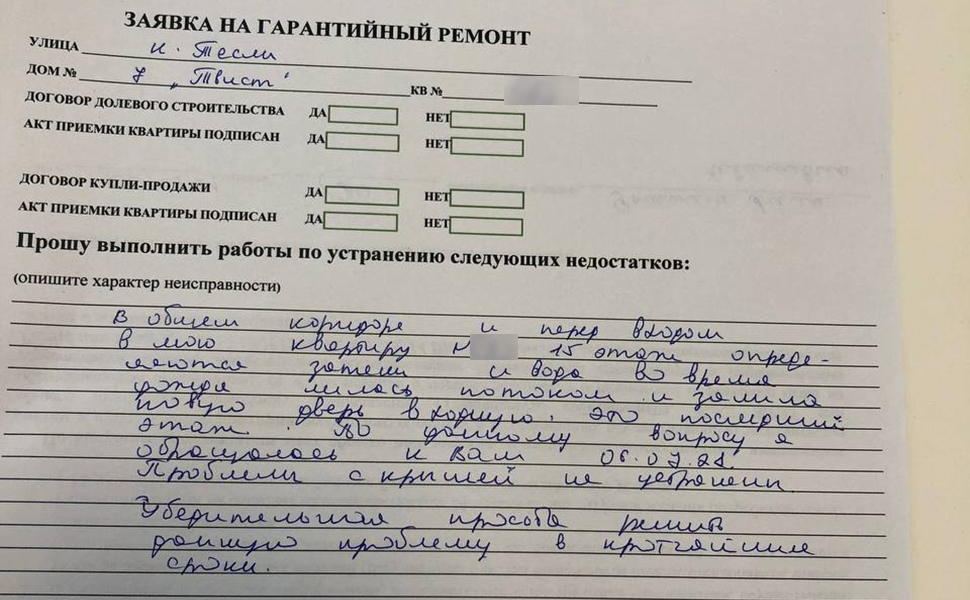 ЗАЯВКА НА ГАРАНТИЙНЫЙ РЕМОНТ
УЛИЦА н. Тесли
ДОМ № 7 „Твист" КВ №
ДОГОВОР ДОЛЕВОГО СТРОИТЕЛЬСТВА ДА НЕТ
АКТ ПРИЕМКИ КВАРТИРЫ ПОДПИСАН ДА НЕТ
ДОГОВОР КУПЛИ-ПРОДАЖИ ДА НЕТ
АКТ ПРИЕМКИ КВАРТИРЫ ПОДПИСАН ДА НЕТ
Прошу выполнить работы по устранению следующих недостатков:
(опишите характер неисправности)
В общем коридоре и перед входом
в мою квартиру № 15 этаж опреде-
ляются затеки и вода во время
дождя лилась потоком и залила
новую дверь входную. Это последний
этаж. По данному вопросу я
обращалась к Вам 06.07.21.
Проблемы с крышей не устранены.
Убедительная просьба решить
данную проблему в кротчайшие
сроки.